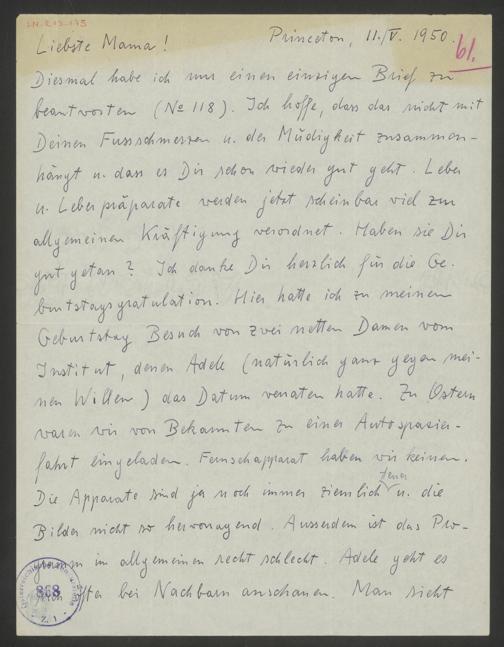 LN. 213.173
61.
Princeton, 11./V. 1950.
Liebste Mama!
Diesmal habe ich nur einen einzigen Brief zu
beantworten (No 118). Ich hoffe, dass das nicht mit
Deinen Fussschmerzen u. der Müdigkeit zusammen-
hängt u. dass es Dir schon wieder gut geht. Leber
u. Leberpräparate werden jetzt scheinbar viel zur
allgemeinen Kräftigung verordnet. Haben sie Dir
gut getan? Ich danke Dir herzlich für die Ge-
burtstagsgratulation. Hier hatte ich zu meinem
Geburtstag Besuch von zwei netten Damen vom
Institut, denen Adele (natürlich ganz gegen mei-
nen Willen) das Datum verraten hatte. Zu Ostern
waren wir von Bekannten zu einer Autospazier-
fahrt eingeladen. Fernsehapparat haben wir keinen.
Die Apparate sind ja noch immer ziemlich teuer u. die
Bilder nicht so hervorragend. Ausserdem ist das Pro-
gramm im allgemeinen recht schlecht. Adele geht es
öfter bei Nachbarn anschauen. Man sieht
868
Z. 1